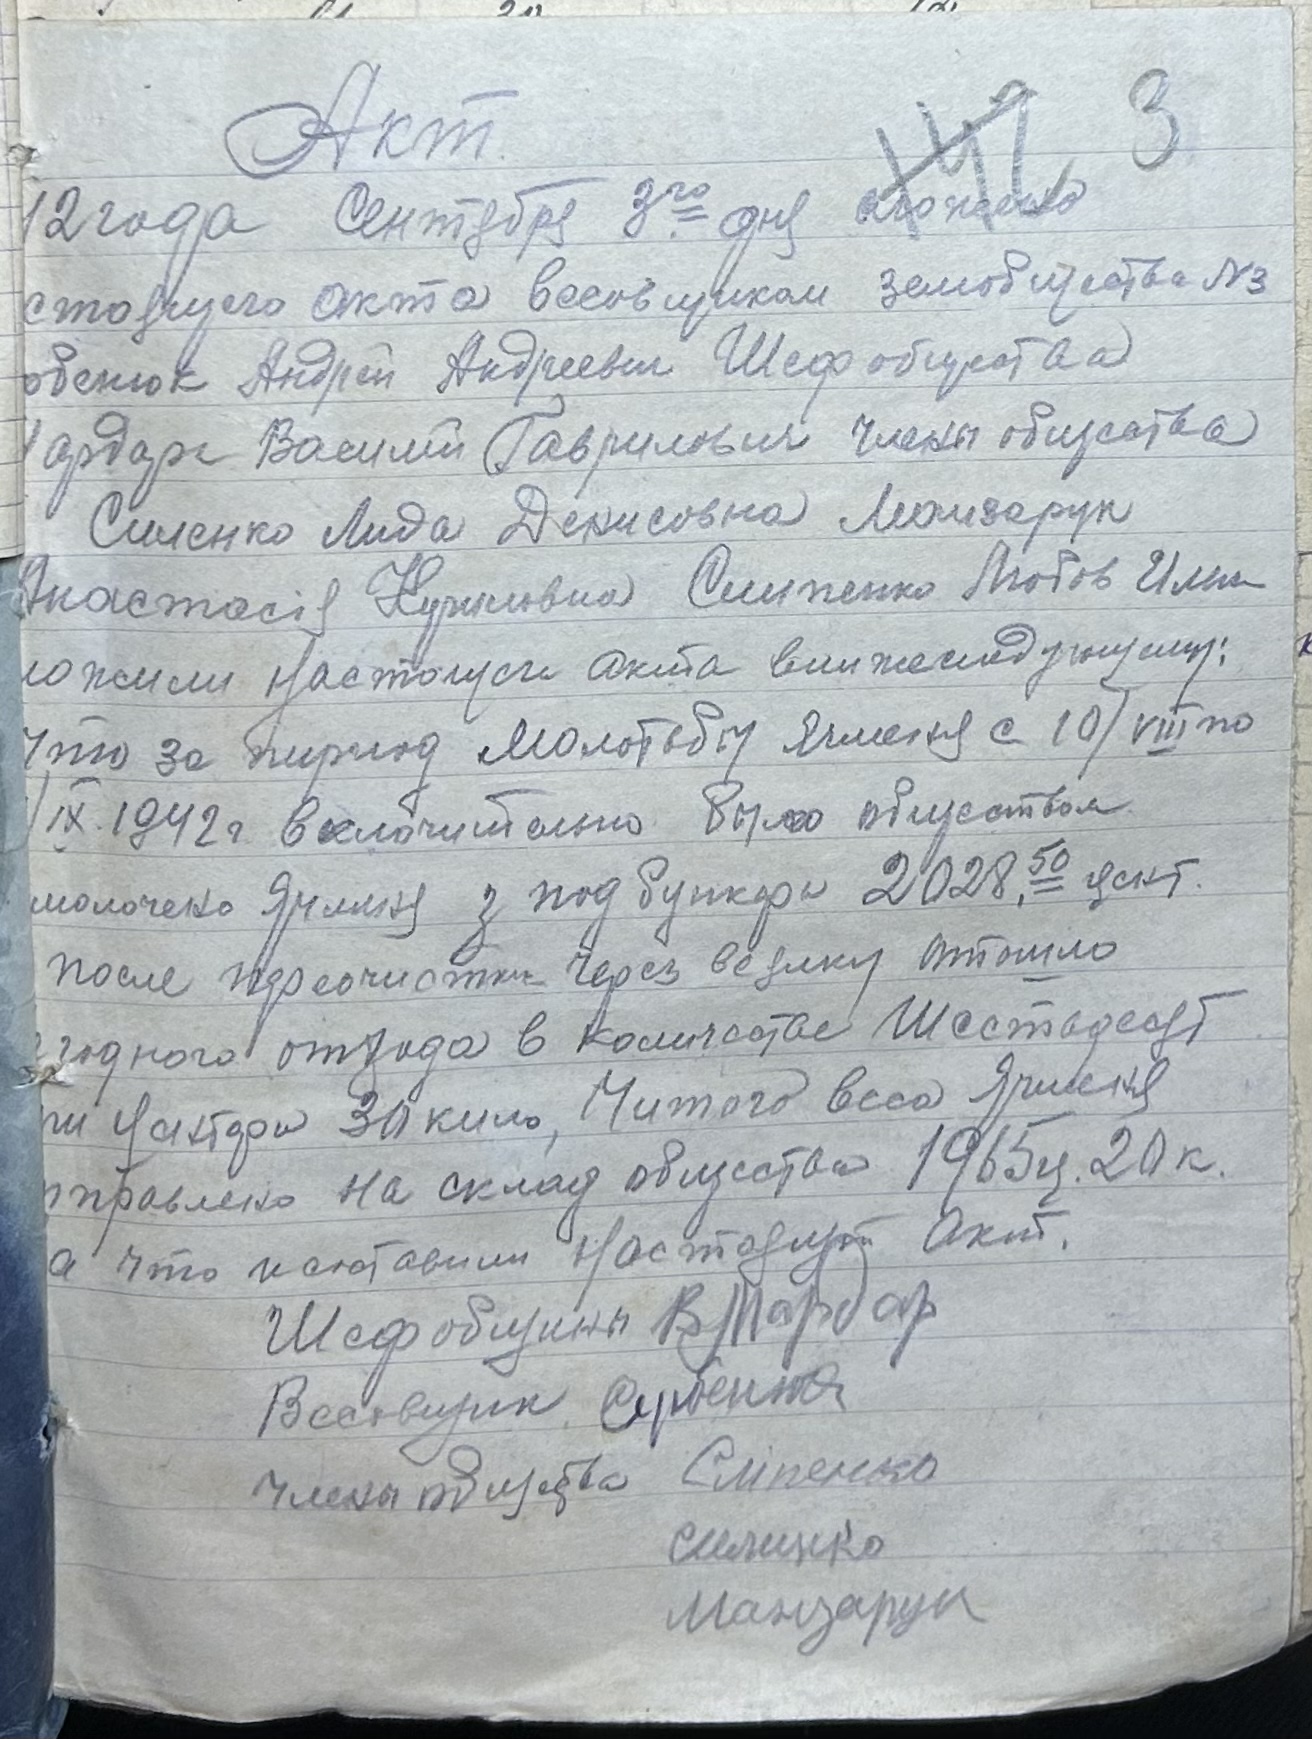 Акт.
142 3
42 года Сентября 3го дня сложено
стоящего акта весовщиком земобщества №3
Андрей Андреевич Шеф общества
Василий Гаврилович члены общества
Силенко Лида Денисовна Манзарук
Анастасія Силенко Любов
ложили настоящи акта вижеследующему:
что за период молотьбы Ячменя с 10/VIII по
/IX. 1942 г включительно было обществом
молочено Ячменя з под бункера 2028,50 цент.
после переочистки через веялку отошло
годного отхода в количестве Шестьдесят
ри центера 30 кило, Читого веса Ячменя
тправлено на склад общества 1965 ц. 20 к.
а что и составили настоящий Акт.
Шеф общины В Мардар
Весовщик.
члены общества Сліпенко
Силенко
Манзарук